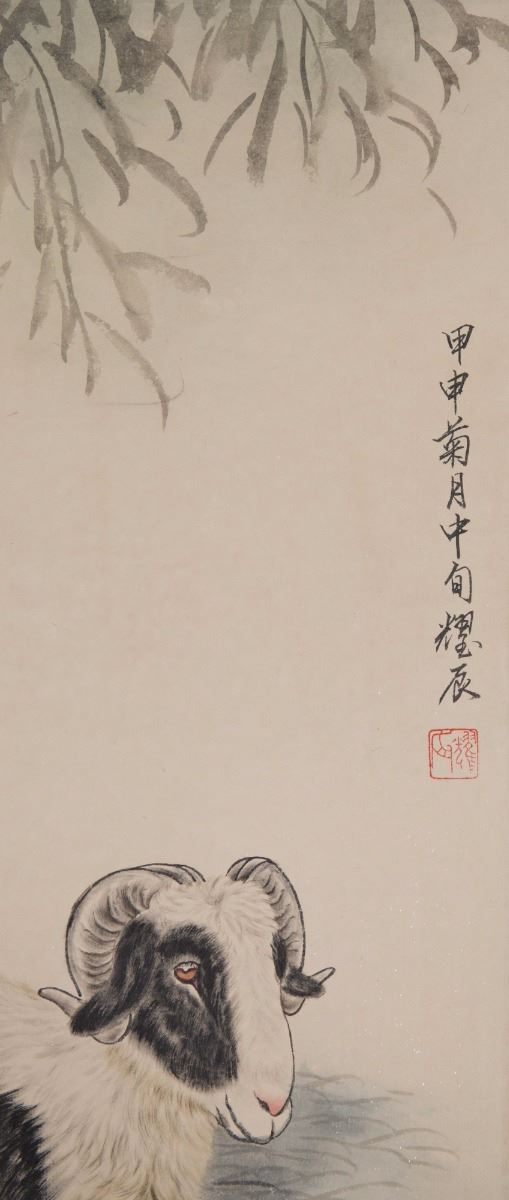 甲申菊月中旬耀辰